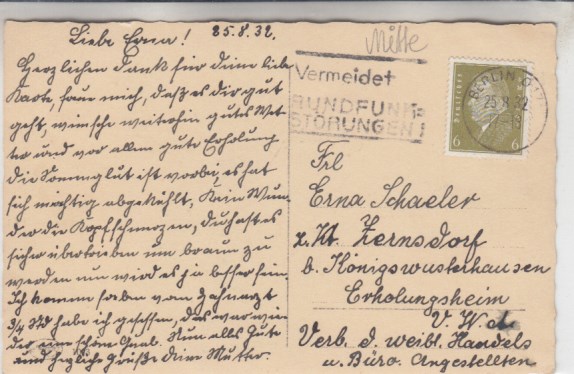 Liebe Erna! 25.8.32.
Herzlichen Dank für deine liebe
Karte, freue mich, daß es dir gut
geht, wünsche weiterhin gutes Wet-
ter und vor allem gute Erholung
die Sonnenglut ist vorbei, es hat
sich mächtig abgekühlt, Kein Wun-
der die Kopfschmerzen, du hast es
sicher übertrieben um braun zu
werden nun wird es ja besser sein.
Ich komme soeben vom Zahnarzt
3/4 Std habe ich gesessen, das war wie-
der eine schöne Qual. Nun alles Gute
und herzliche Grüße deine Mutter.
Mitte
Vermeidet
RUNDFUNK-
STÖRUNGEN!
BERLIN
25.8.32
6 6
Frl
Erna Schaeler
z. Zt. Zernsdorf
b. Königswusterhausen
Erholungsheim
V. W. A.
Verb. d. weibl. Handels
u. Büro. Angestellten